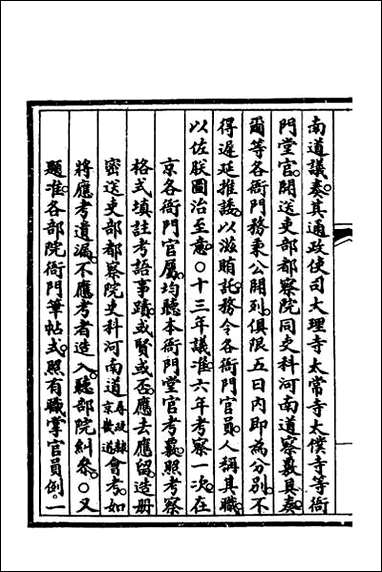 南道議奏其通政使司大理寺太常寺太僕寺等衙
門堂官開送吏部都察院同吏科河南道察覈具奏
爾等各衙門務秉公開列俱限五日內即為分別不
得遲延推諉以滋賄託務令各衙門官員人稱其職
以佐朕圖治至意〇十三年議准六年考察一次在
京各衙門官屬均聽本衙門堂官考覈照考察
格式填註考語事蹟或賢或否應去應留造册
密送吏部都察院吏科河南道會考如
將應考遺漏不應考者造入聽部院糾參〇又
題准各部院衙門筆帖式照有職掌官員例一